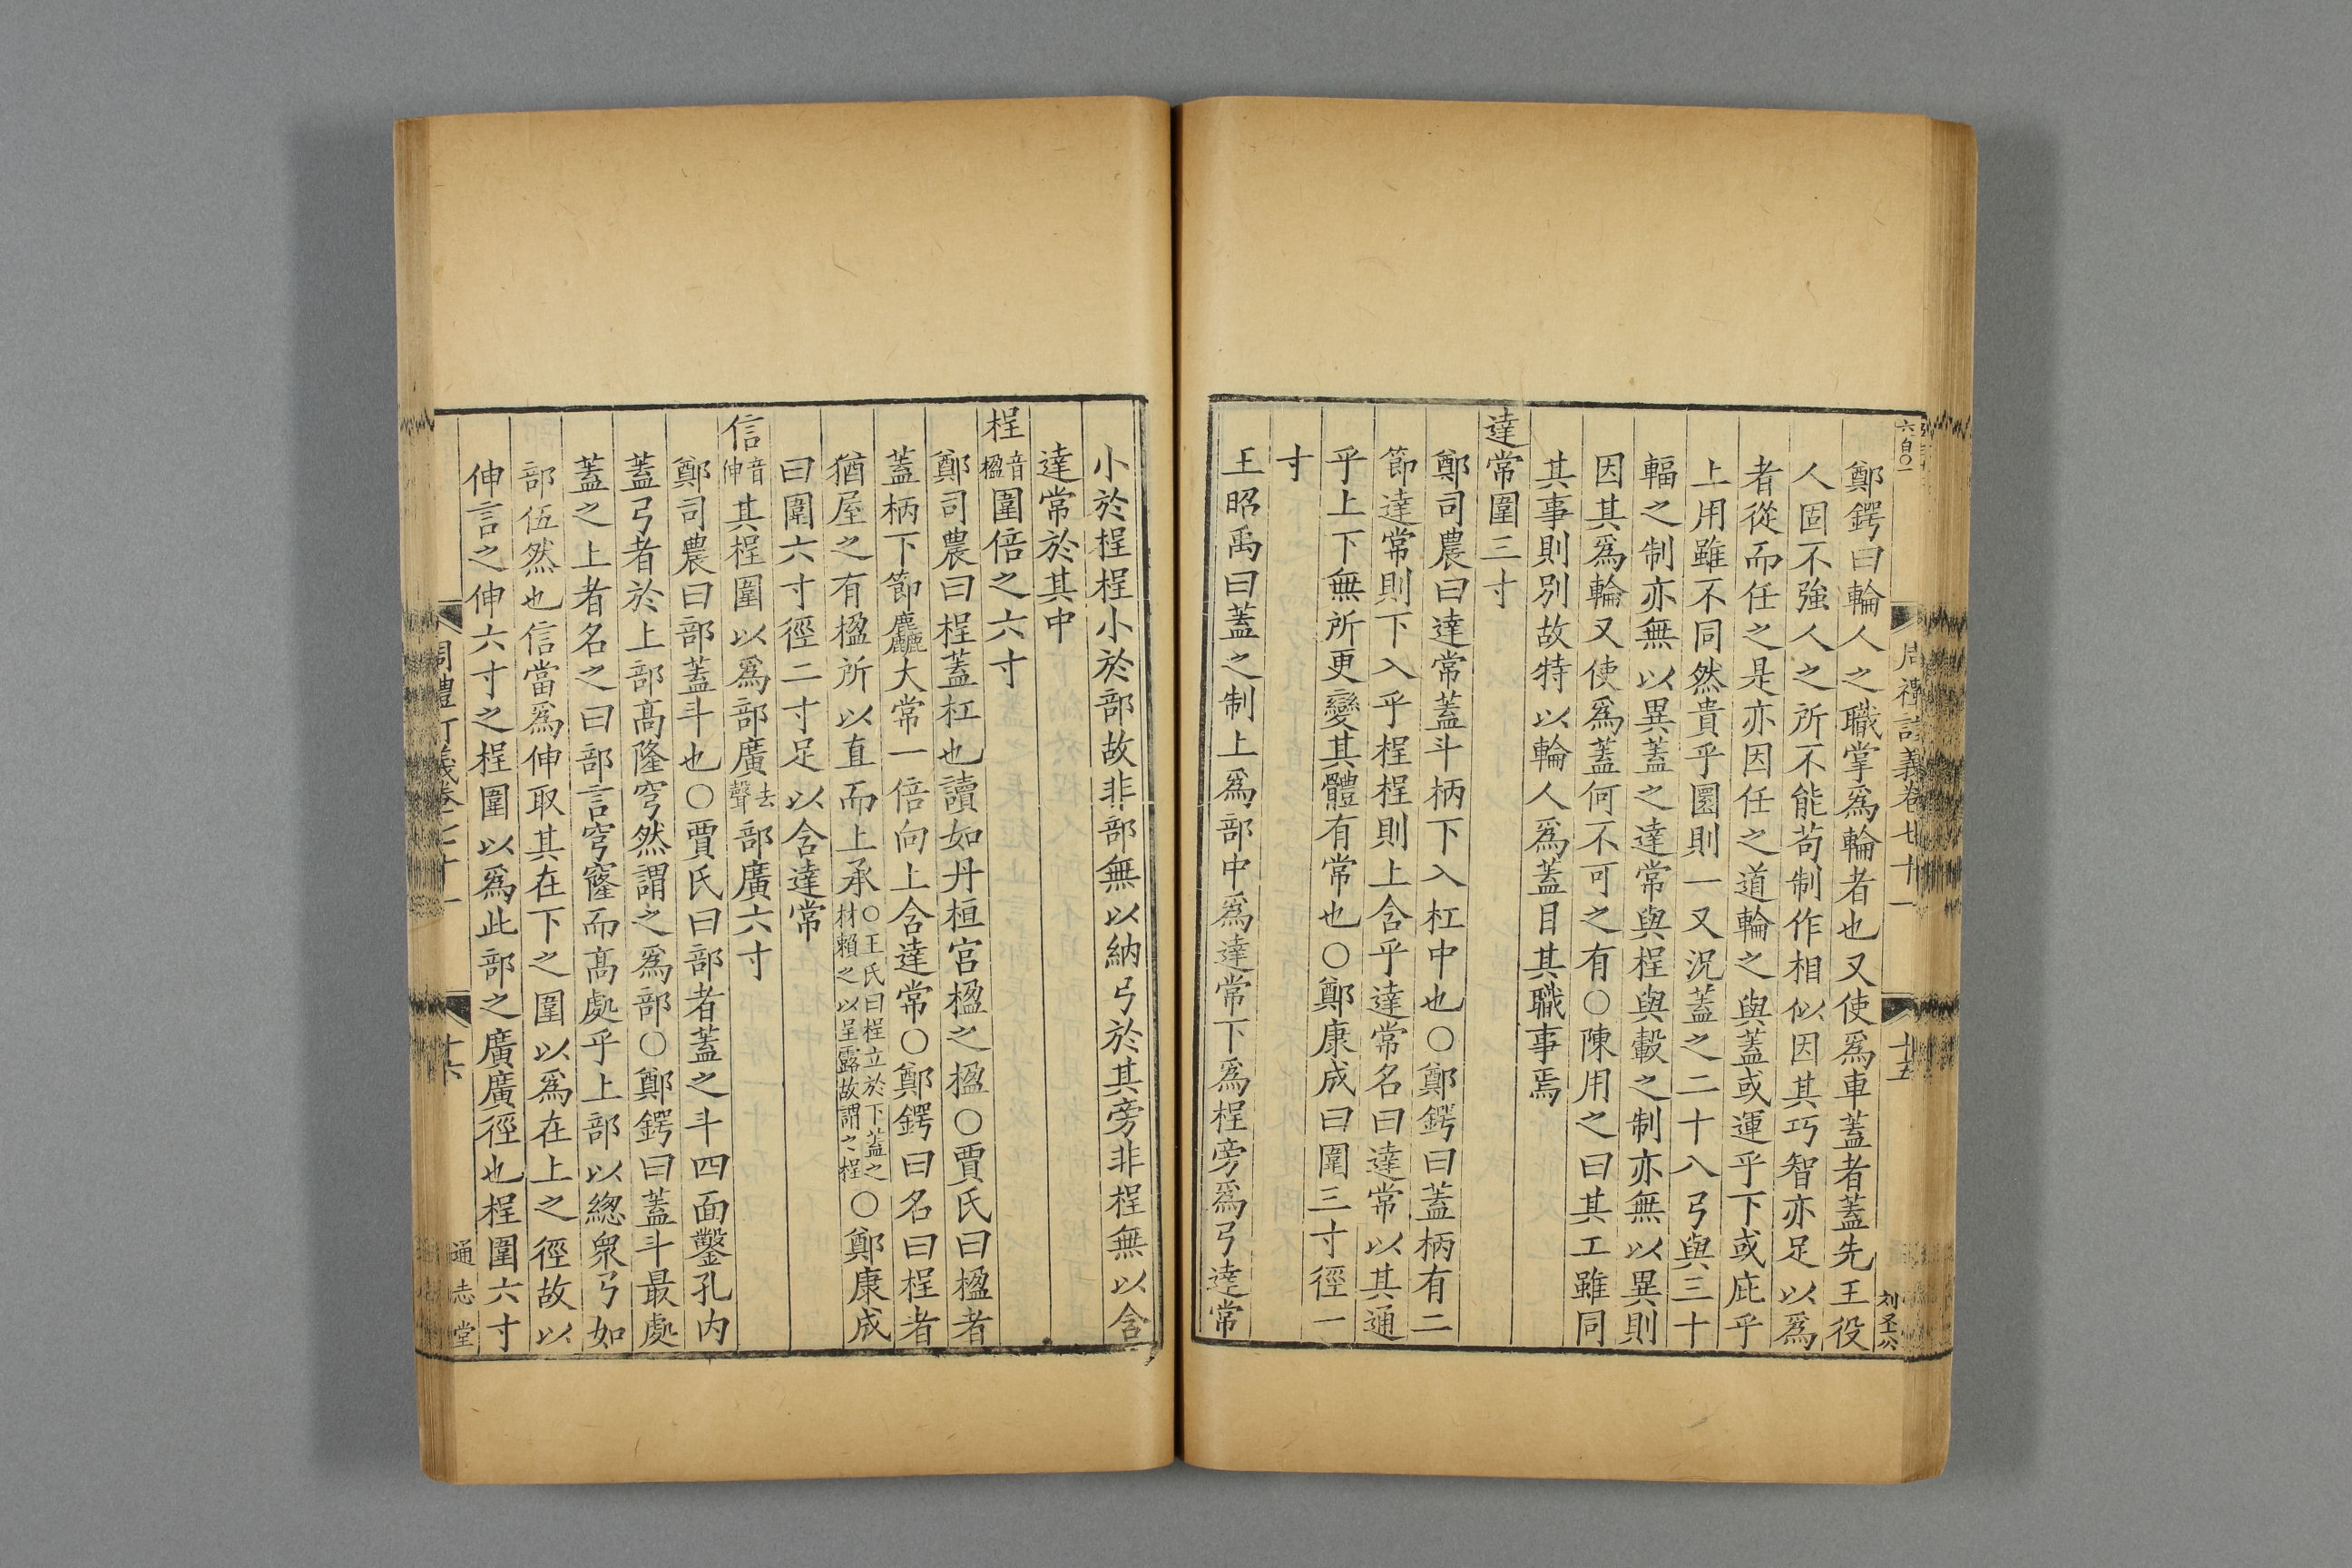 周禮訂義卷七十一
十五
鄭鍔曰輪人之職掌爲輪者也又使爲車蓋者蓋先王役
人固不強人之所不能苟制作相似因其巧智亦足以爲
者從而任之是亦因任之道輪之與蓋或運乎下或庇乎
上用雖不同然貴乎圜則一又況蓋之二十八弓與三十
輻之制亦無以異蓋之達常與桯與轂之制亦無以異則
因其爲輪又使爲蓋何不可之有○陳用之曰其工雖同
其事則別故特以輪人爲蓋目其職事焉
達常圍三寸
鄭司農曰達常蓋斗柄下入杠中也○鄭鍔曰蓋柄有二
節達常則下入乎桯桯則上含乎達常名曰達常以其通
乎上下無所更變其體有常也○鄭康成曰圍三寸徑一
寸
王昭禹曰蓋之制上爲部中爲達常下爲桯旁爲弓達常
小於桯桯小於部故非部無以納弓於其旁非桯無以含
達常於其中
桯音楹圍倍之六寸
鄭司農曰桯蓋杠也讀如丹桓宮楹之楹○賈氏曰楹者
蓋柄下節麤大常一倍向上含達常○鄭鍔曰名曰桯者
猶屋之有楹所以直而上承○王氏曰桯立於下蓋之材賴之以呈露故謂之桯○鄭康成
曰圍六寸徑二寸足以含達常
信音伸其桯圍以爲部廣去聲部廣六寸
鄭司農曰部蓋斗也○賈氏曰部者蓋之斗四面鑿孔內
蓋弓者於上部高隆穹然謂之爲部○鄭鍔曰蓋斗最處
蓋之上者名之曰部言穹窿而高處乎上部以緫衆弓如
部伍然也信當爲伸取其在下之圍以爲在上之徑故以
伸言之伸六寸之桯圍以爲此部之廣廣徑也桯圍六寸
十六
通志堂